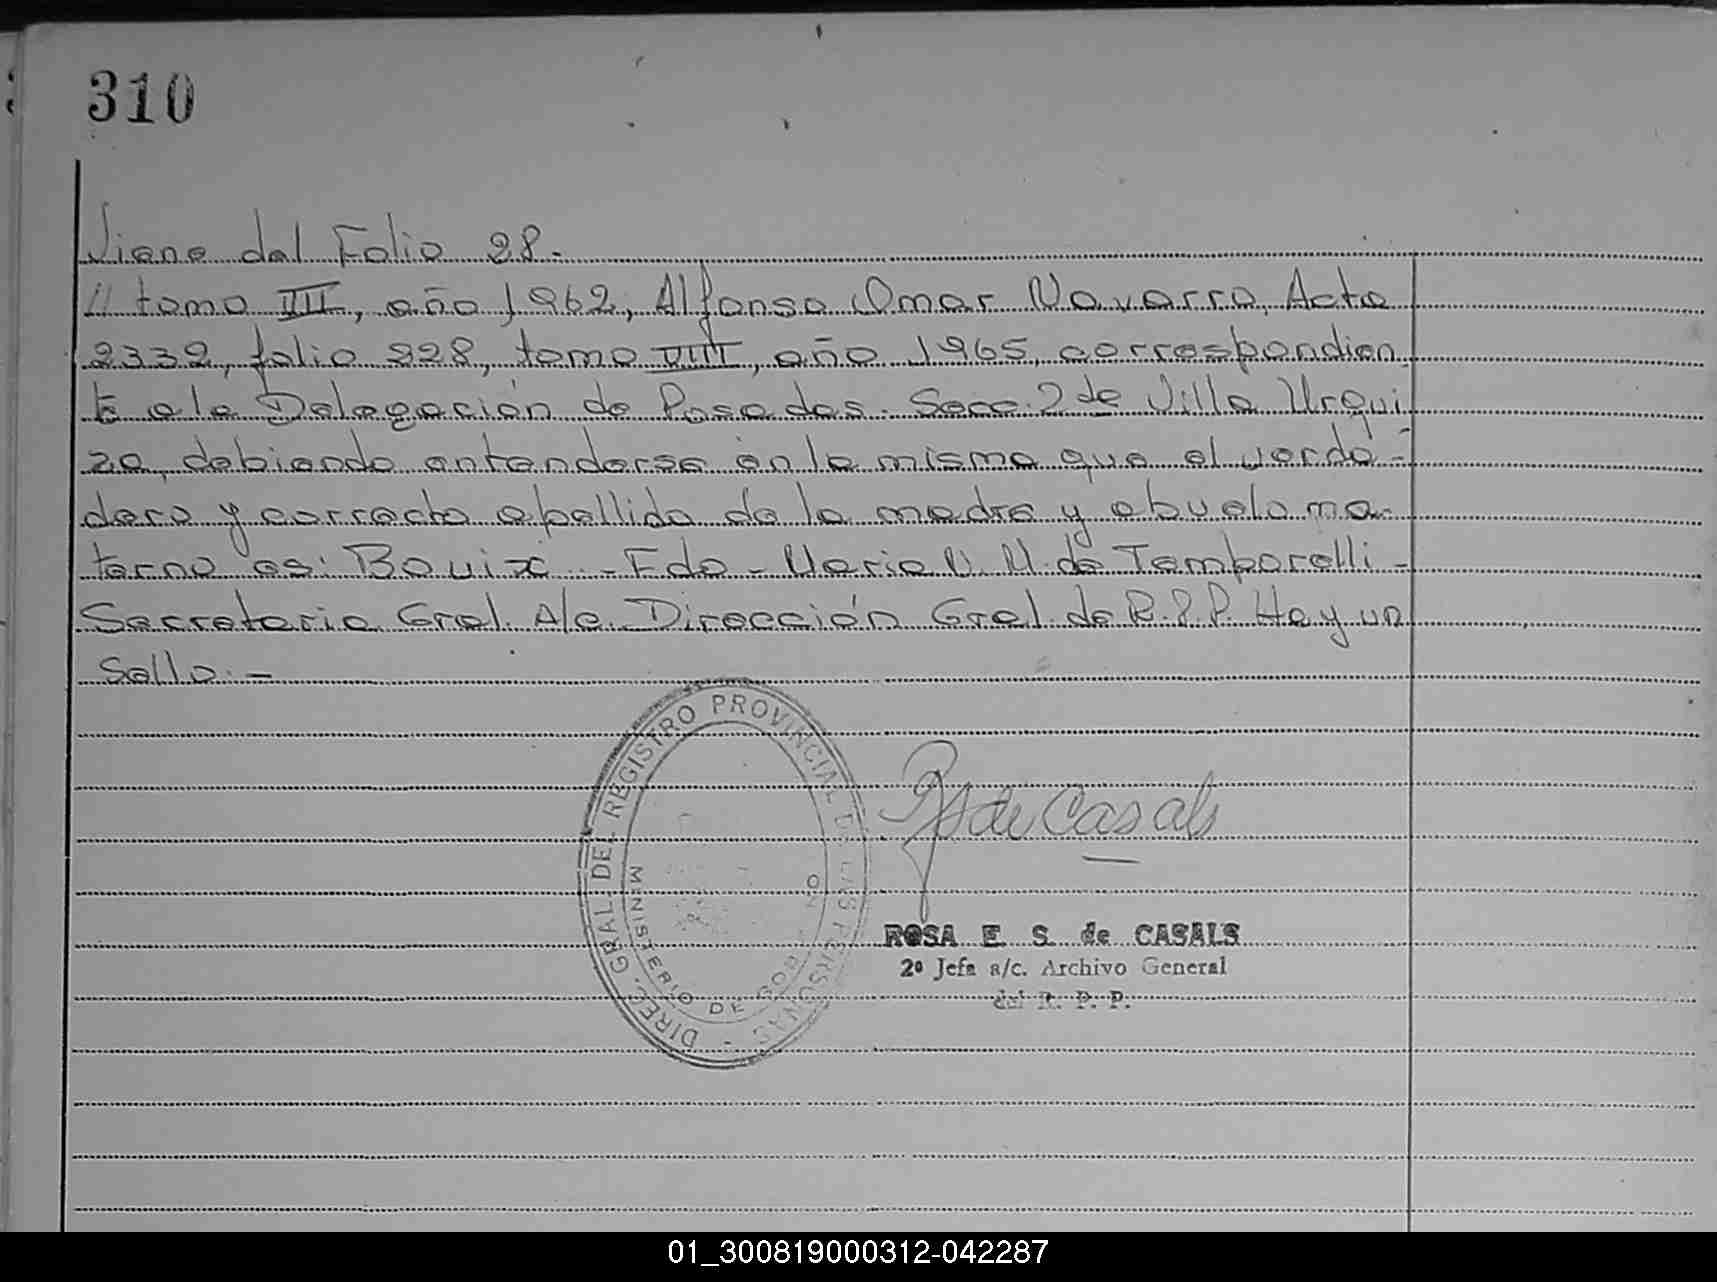 310
Viene del Folio 28.-
// tomo VII, año 1962, Alfonso Omar Navarro, Acta
2332, folio 228, tomo VIII, año 1965, correspondien
te a la Delegación de Posadas. Secc. 2 de Villa Urqui
za, debiendo entenderse en la misma que el verda-
dero y correcto apellido de la madre y abuelo ma-
terno es: Bouix. - Fdo - Maria N. M. de Temporelli -
Secretaria Gral. A/c. Dirección Gral. de R.P.P. Hay un
Sello. -
DIREC. GRAL. DEL REGISTRO PROVINCIAL DE LAS PERSONAS -
MINISTERIO DE GOB
R S de Casals
ROSA E. S. de CASALS
2º Jefa a/c. Archivo General
del R. P. P.
01_300819000312-042287